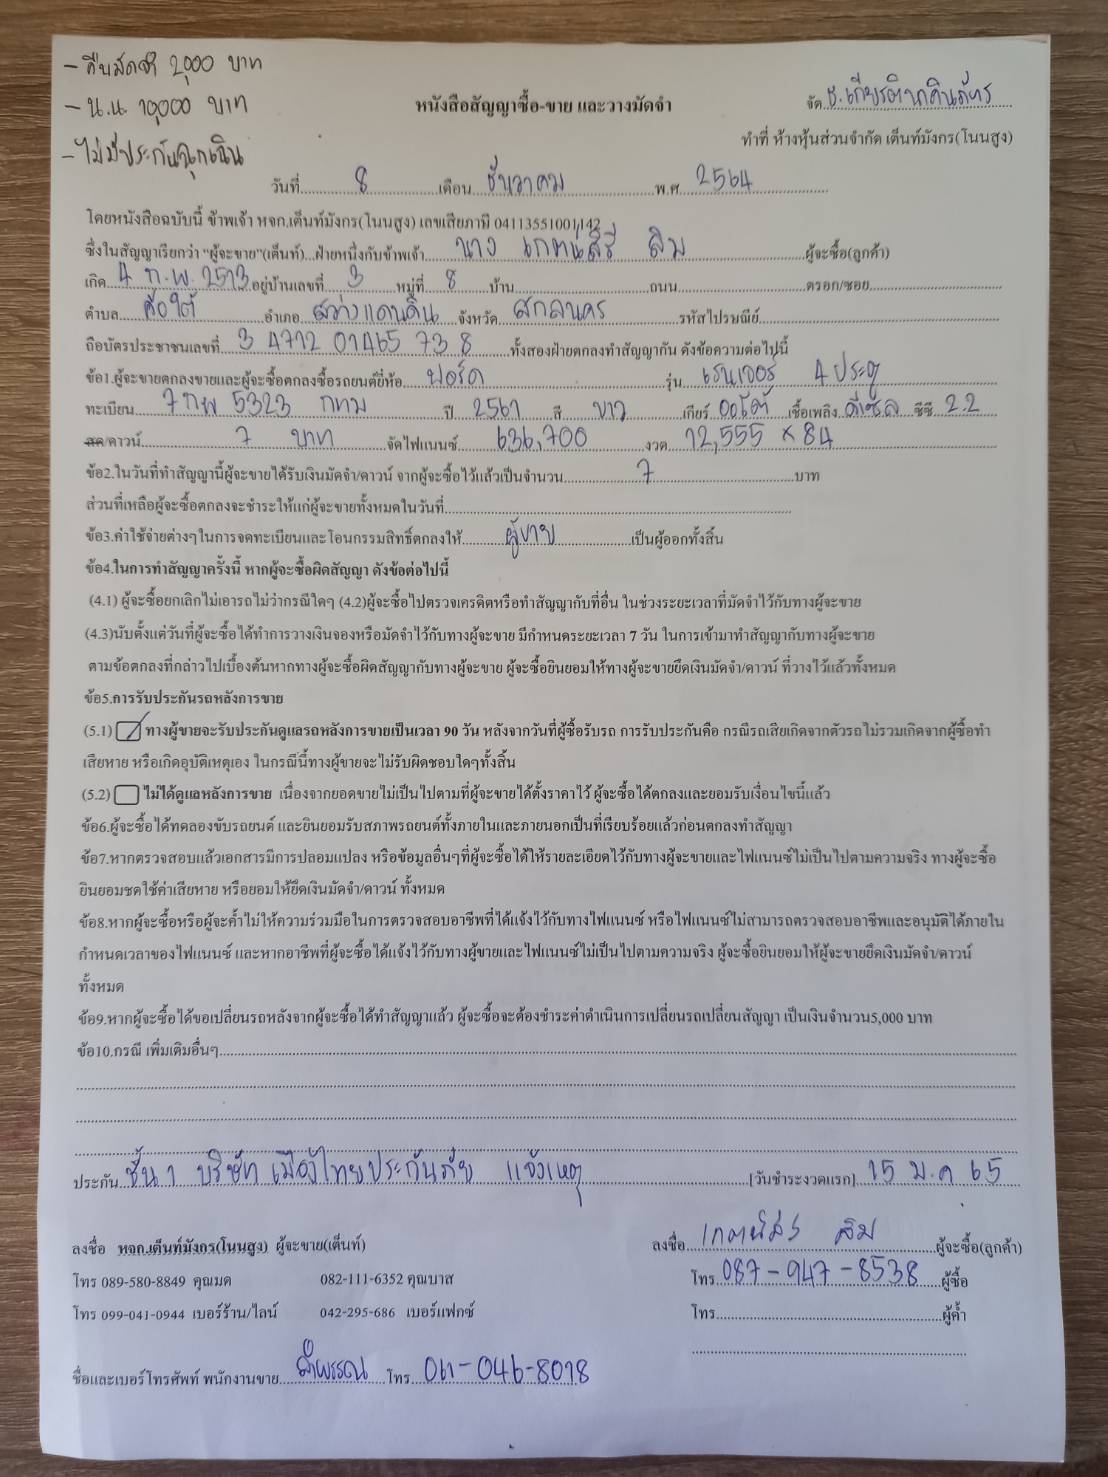 - คืนมัดจำ 2,000 บาท
- น.น. 10,000 บาท
- ไม่มีประกันฉุกเฉิน
หนังสือสัญญาซื้อ-ขาย และวางมัดจำ
จัด ธ.เกียรตินาคินภัทร
ทำที่ ห้างหุ้นส่วนจำกัด เต็นท์มังกร(โนนสูง)
วันที่ 8 เดือน ธันวาคม พ.ศ 2564
โดยหนังสือฉบับนี้ ข้าพเจ้า หจก.เต็นท์มังกร(โนนสูง) เลขเสียภาษี 04113551001142
ซึ่งในสัญญาเรียกว่า "ผู้จะขาย"(เต็นท์)...ฝ่ายหนึ่งกับข้าพเจ้า นาง เกศน์สิรี ลิม ผู้จะซื้อ(ลูกค้า)
เกิด 4 ก.พ. 2513 อยู่บ้านเลขที่ 3 หมู่ที่ 8 บ้าน ถนน ตรอก/ซอย
ตำบล ค้อใต้ อำเภอ สว่างแดนดิน จังหวัด สกลนคร รหัสไปรษณีย์
ถือบัตรประชาชนเลขที่ 3 4712 01465 73 8 ทั้งสองฝ่ายตกลงทำสัญญากัน ดังข้อความต่อไปนี้
ข้อ1.ผู้จะขายตกลงขายและผู้จะซื้อตกลงซื้อรถยนต์ยี่ห้อ ฟอร์ด รุ่น เรนเจอร์ 4 ประตู
ทะเบียน 7กพ 5323 กทม ปี 2561 สี ขาว เกียร์ ออโต้ เชื้อเพลิง ดีเซล ซีซี 2.2
สด/ดาวน์ 7 บาท จัดไฟแนนซ์ 636,700 งวด 12,555 x 84
ข้อ2.ในวันที่ทำสัญญานี้ผู้จะขายได้รับเงินมัดจำ/ดาวน์ จากผู้จะซื้อไว้แล้วเป็นจำนวน 7 บาท
ส่วนที่เหลือผู้จะซื้อตกลงจะชำระให้แก่ผู้จะขายทั้งหมดในวันที่
ข้อ3.ค่าใช้จ่ายต่างๆในการจดทะเบียนและโอนกรรมสิทธิ์ตกลงให้ ผู้ขาย เป็นผู้ออกทั้งสิ้น
ข้อ4.ในการทำสัญญาครั้งนี้ หากผู้จะซื้อผิดสัญญา ดังข้อต่อไปนี้
(4.1) ผู้จะซื้อยกเลิกไม่เอารถไม่ว่ากรณีใดๆ (4.2)ผู้จะซื้อไปตรวจเครดิตหรือทำสัญญากับที่อื่น ในช่วงระยะเวลาที่มัดจำไว้กับทางผู้จะขาย
(4.3)นับตั้งแต่วันที่ผู้จะซื้อได้ทำการวางเงินจองหรือมัดจำไว้กับทางผู้จะขาย มีกำหนดระยะเวลา 7 วัน ในการเข้ามาทำสัญญากับทางผู้จะขาย
ตามข้อตกลงที่กล่าวไปเบื้องต้นหากทางผู้จะซื้อผิดสัญญากับทางผู้จะขาย ผู้จะซื้อยินยอมให้ทางผู้จะขายยึดเงินมัดจำ/ดาวน์ ที่วางไว้แล้วทั้งหมด
ข้อ5.การรับประกันรถหลังการขาย
(5.1) ทางผู้ขายจะรับประกันดูแลรถหลังการขายเป็นเวลา 90 วัน หลังจากวันที่ผู้ซื้อรับรถ การรับประกันคือ กรณีรถเสียเกิดจากตัวรถไม่รวมเกิดจากผู้ซื้อทำ
เสียหาย หรือเกิดอุบัติเหตุเอง ในกรณีนี้ทางผู้ขายจะไม่รับผิดชอบใดๆทั้งสิ้น
(5.2) ไม่ได้ดูแลหลังการขาย เนื่องจากยอดขายไม่เป็นไปตามที่ผู้จะขายได้ตั้งราคาไว้ ผู้จะซื้อได้ตกลงและยอมรับเงื่อนไขนี้แล้ว
ข้อ6.ผู้จะซื้อได้ทดลองขับรถยนต์ และยินยอมรับสภาพรถยนต์ทั้งภายในและภายนอกเป็นที่เรียบร้อยแล้วก่อนตกลงทำสัญญา
ข้อ7.หากตรวจสอบแล้วเอกสารมีการปลอมแปลง หรือข้อมูลอื่นๆที่ผู้จะซื้อได้ให้รายละเอียดไว้กับทางผู้จะขายและไฟแนนซ์ไม่เป็นไปตามความจริง ทางผู้จะซื้อ
ยินยอมชดใช้ค่าเสียหาย หรือยอมให้ยึดเงินมัดจำ/ดาวน์ ทั้งหมด
ข้อ8.หากผู้จะซื้อหรือผู้จะค้ำไม่ให้ความร่วมมือในการตรวจสอบอาชีพที่ได้แจ้งไว้กับทางไฟแนนซ์ หรือไฟแนนซ์ไม่สามารถตรวจสอบอาชีพและอนุมัติได้ภายใน
กำหนดเวลาของไฟแนนซ์ และหากอาชีพที่ผู้จะซื้อได้แจ้งไว้กับทางผู้ขายและไฟแนนซ์ไม่เป็นไปตามความจริง ผู้จะซื้อยินยอมให้ผู้จะขายยึดเงินมัดจำ/ดาวน์
ทั้งหมด
ข้อ9.หากผู้จะซื้อได้ขอเปลี่ยนรถหลังจากผู้จะซื้อได้ทำสัญญาแล้ว ผู้จะซื้อจะต้องชำระค่าดำเนินการเปลี่ยนรถเปลี่ยนสัญญา เป็นเงินจำนวน5,000 บาท
ข้อ10.กรณี เพิ่มเติมอื่นๆ
ประกัน ชั้น 1 บริษัท เมืองไทยประกันภัย แจ้งเหตุ [วันชำระงวดแรก] 15 ม.ค 65
ลงชื่อ หจก.เต็นท์มังกร(โนนสูง) ผู้จะขาย(เต็นท์) ลงชื่อ เกศน์สิรี ลิม ผู้จะซื้อ(ลูกค้า)
โทร 089-580-8849 คุณมด 082-111-6352 คุณบาส โทร 087-947-8538 ผู้ซื้อ
โทร 099-041-0944 เบอร์ร้าน/ไลน์ 042-295-686 เบอร์แฟกซ์ โทร ผู้ค้ำ
ชื่อและเบอร์โทรศัพท์ พนักงานขาย ลำพรรณ โทร 061-046-8018